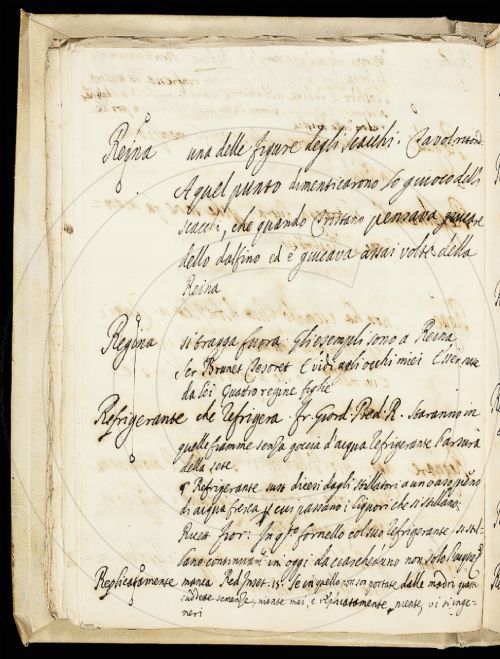 Reina una delle figure degli Scacchi. Tavol. riton.
A quel punto dimenticarono lo giuoco delli
scacchi, che quando Tristano pensava giucare
dello dalfino ed e giucava assai volte della
Reina
Regina si tragga fuora. Gli esempli sono a Reina
Ser Brunet. Tesoret. E vidi agli occhi miei E ser
da lei Quatro regine figlie
Refrigerante che refrigera. Fr. Giord. Pred. R. Staranno in
quelle fiamme senza goccia d'acqua refrigerante l'arsura
della sete
¶ Refrigerante sust. dicesi dagli stillatori a un vaso pieno
di acqua fresca per cui passano i liquori che si stillano.
Ricett. Fior. In q.to fornello col suo refrigerante si stil-
lano continuam.te in oggi da ciascheduno non solo l'acque
Replicatamente manca Red. Inset. 15. Se in quello non son portate dalle madri queste
suddette semenze, niente mai, e replicatamente niente, vi si inge-
neri